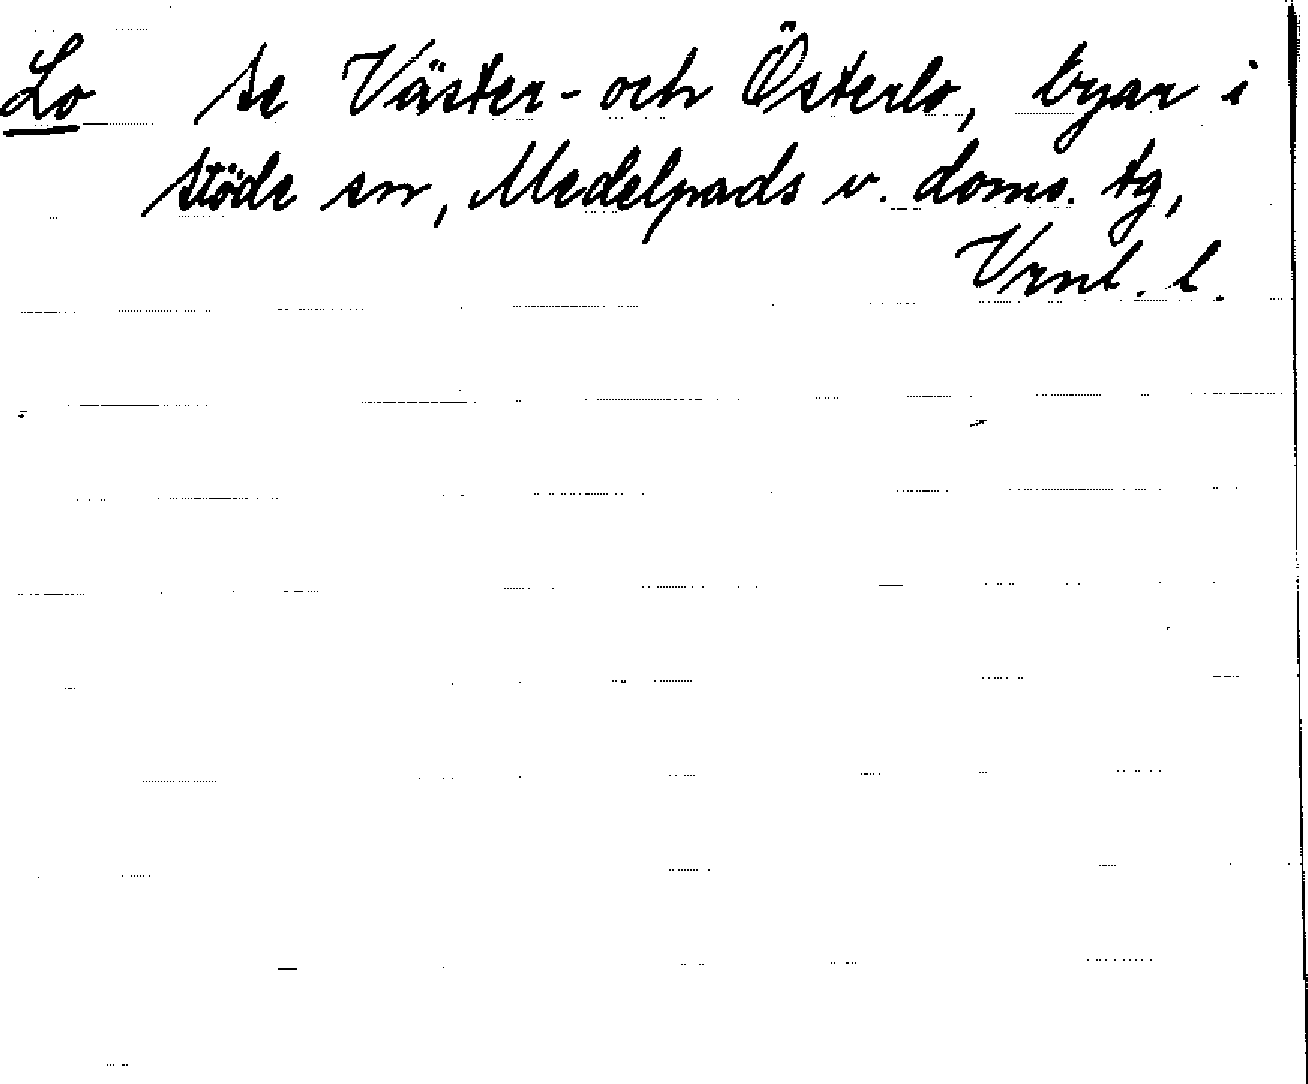 Lo se Väster- och Österlo, byar i
Stöde sn, Medelpads v. doms. tg,
Vrnl. l.